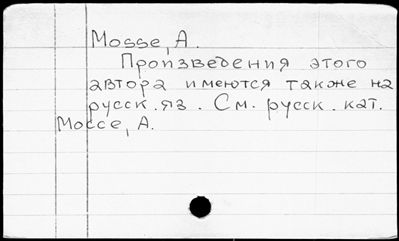 Mosse, A.
Произведения этого
автора имеются также на
русск. яз. См. русск. кат.
Моссе, А.